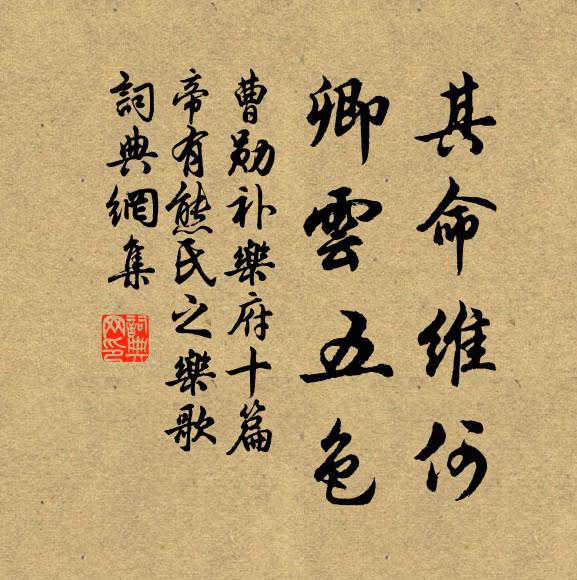 其命維何
卿雲五色
曹勛补樂府十篇
帝有熊氏之樂歌
詞典網集
詞典
网印